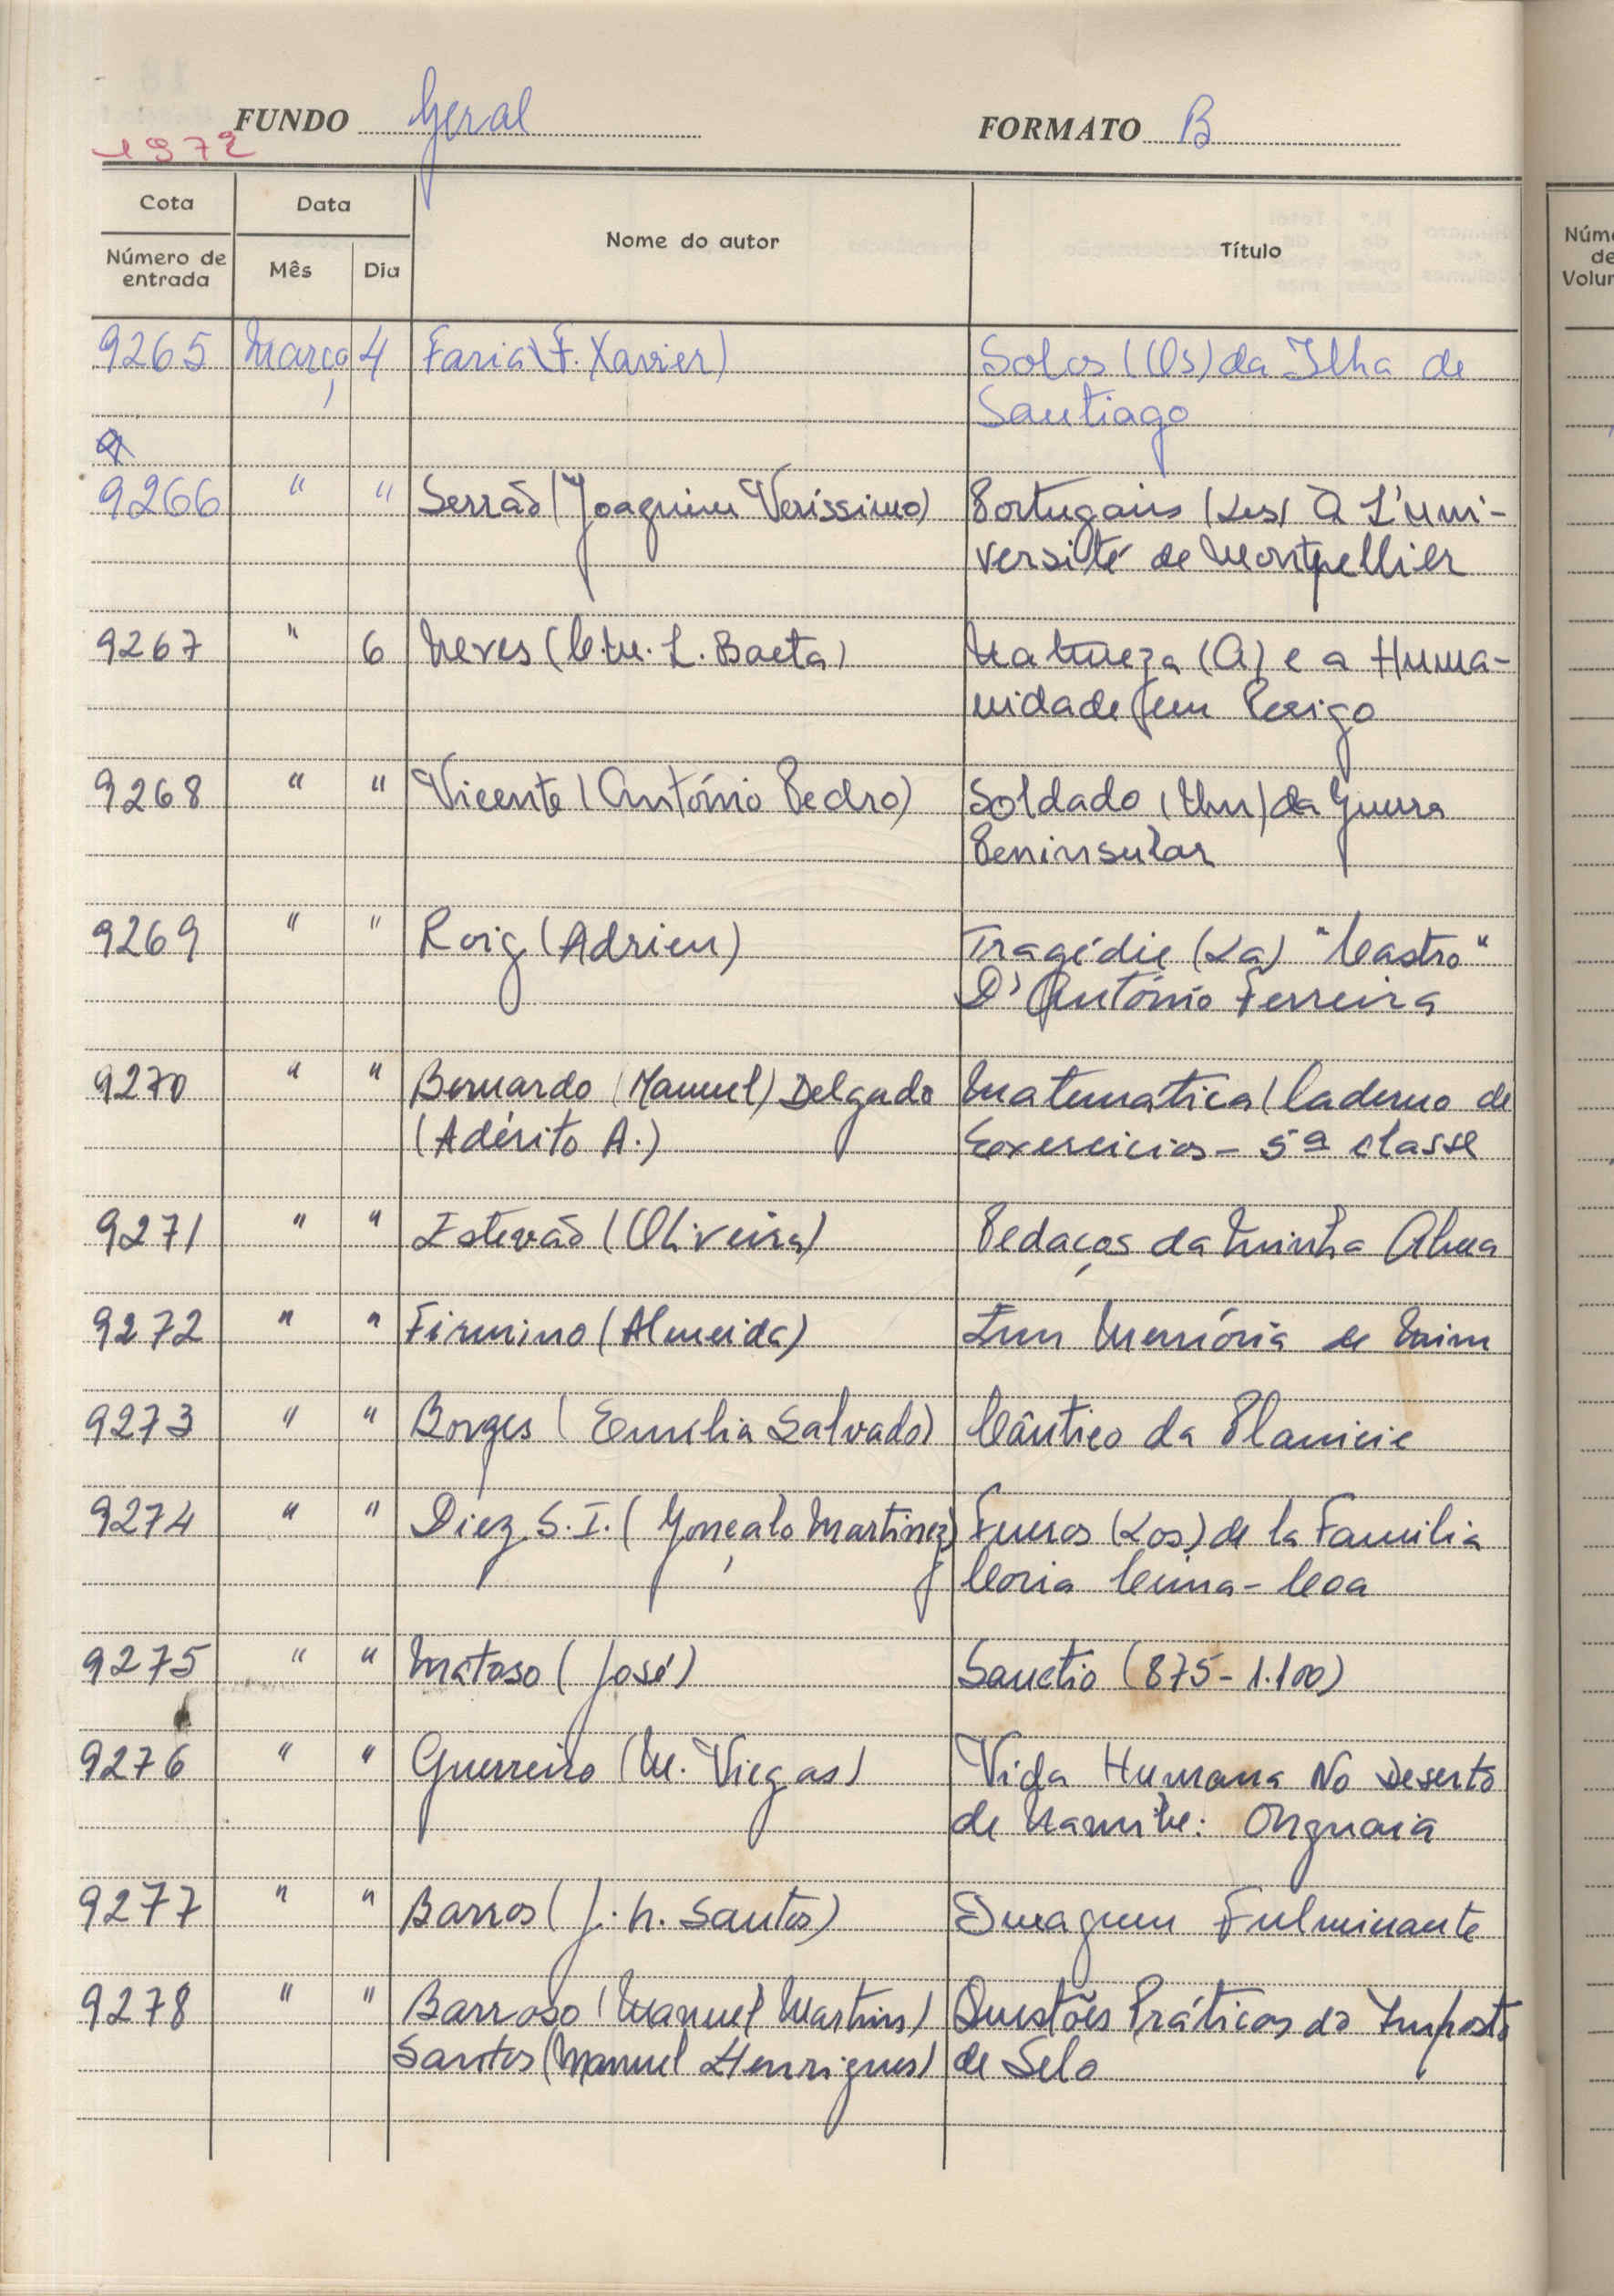 FUNDO Geral FORMATO B
1972
Cota Data Nome do autor Título
Número de entrada Mês Dia
Núm
de
Volu
9265 Março 4 Faria (F. Xavier) Solos (Os) da Ilha de
Santiago
9266 " " Serrão (Joaquim Veríssimo) Portugais (Les) À L'uni-
versité de Montpellier
9267 " 6 Neves (C.M. L. Baeta) Natureza (A) e a Huma-
nidade em Perigo
9268 " " Vicente (António Pedro) Soldado (Um) da Guerra
Peninsular
9269 " " Roig (Adrien) Tragédie (La) "Castro"
D'António Ferreira
9270 " " Bernardo (Manuel) Delgado Matematica (Caderno de
(Adérito A.) Exercicios - 5ª classe
9271 " " Estevão (Oliveira) Pedaços da Minha Alma
9272 " " Firmino (Almeida) Em Memória de Mim
9273 " " Borges (Emília Salvado) Cântico da Planicie
9274 " " Diez S. I. (Gonçalo Martinez) Fueros (Los) de la Familia
Coria Cima-Coa
9275 " " Matoso (José) Sanctio (875-1.100)
9276 " " Guerreiro (M. Viegas) Vida Humana No Deserto
de Namibe: Onguaia
9277 " " Barros (J. h. Santos) Imagem Fulminante
9278 " " Barroso (Manuel Martins) Questões Práticas do Imposto
Santos (Manuel Henriques) de Selo